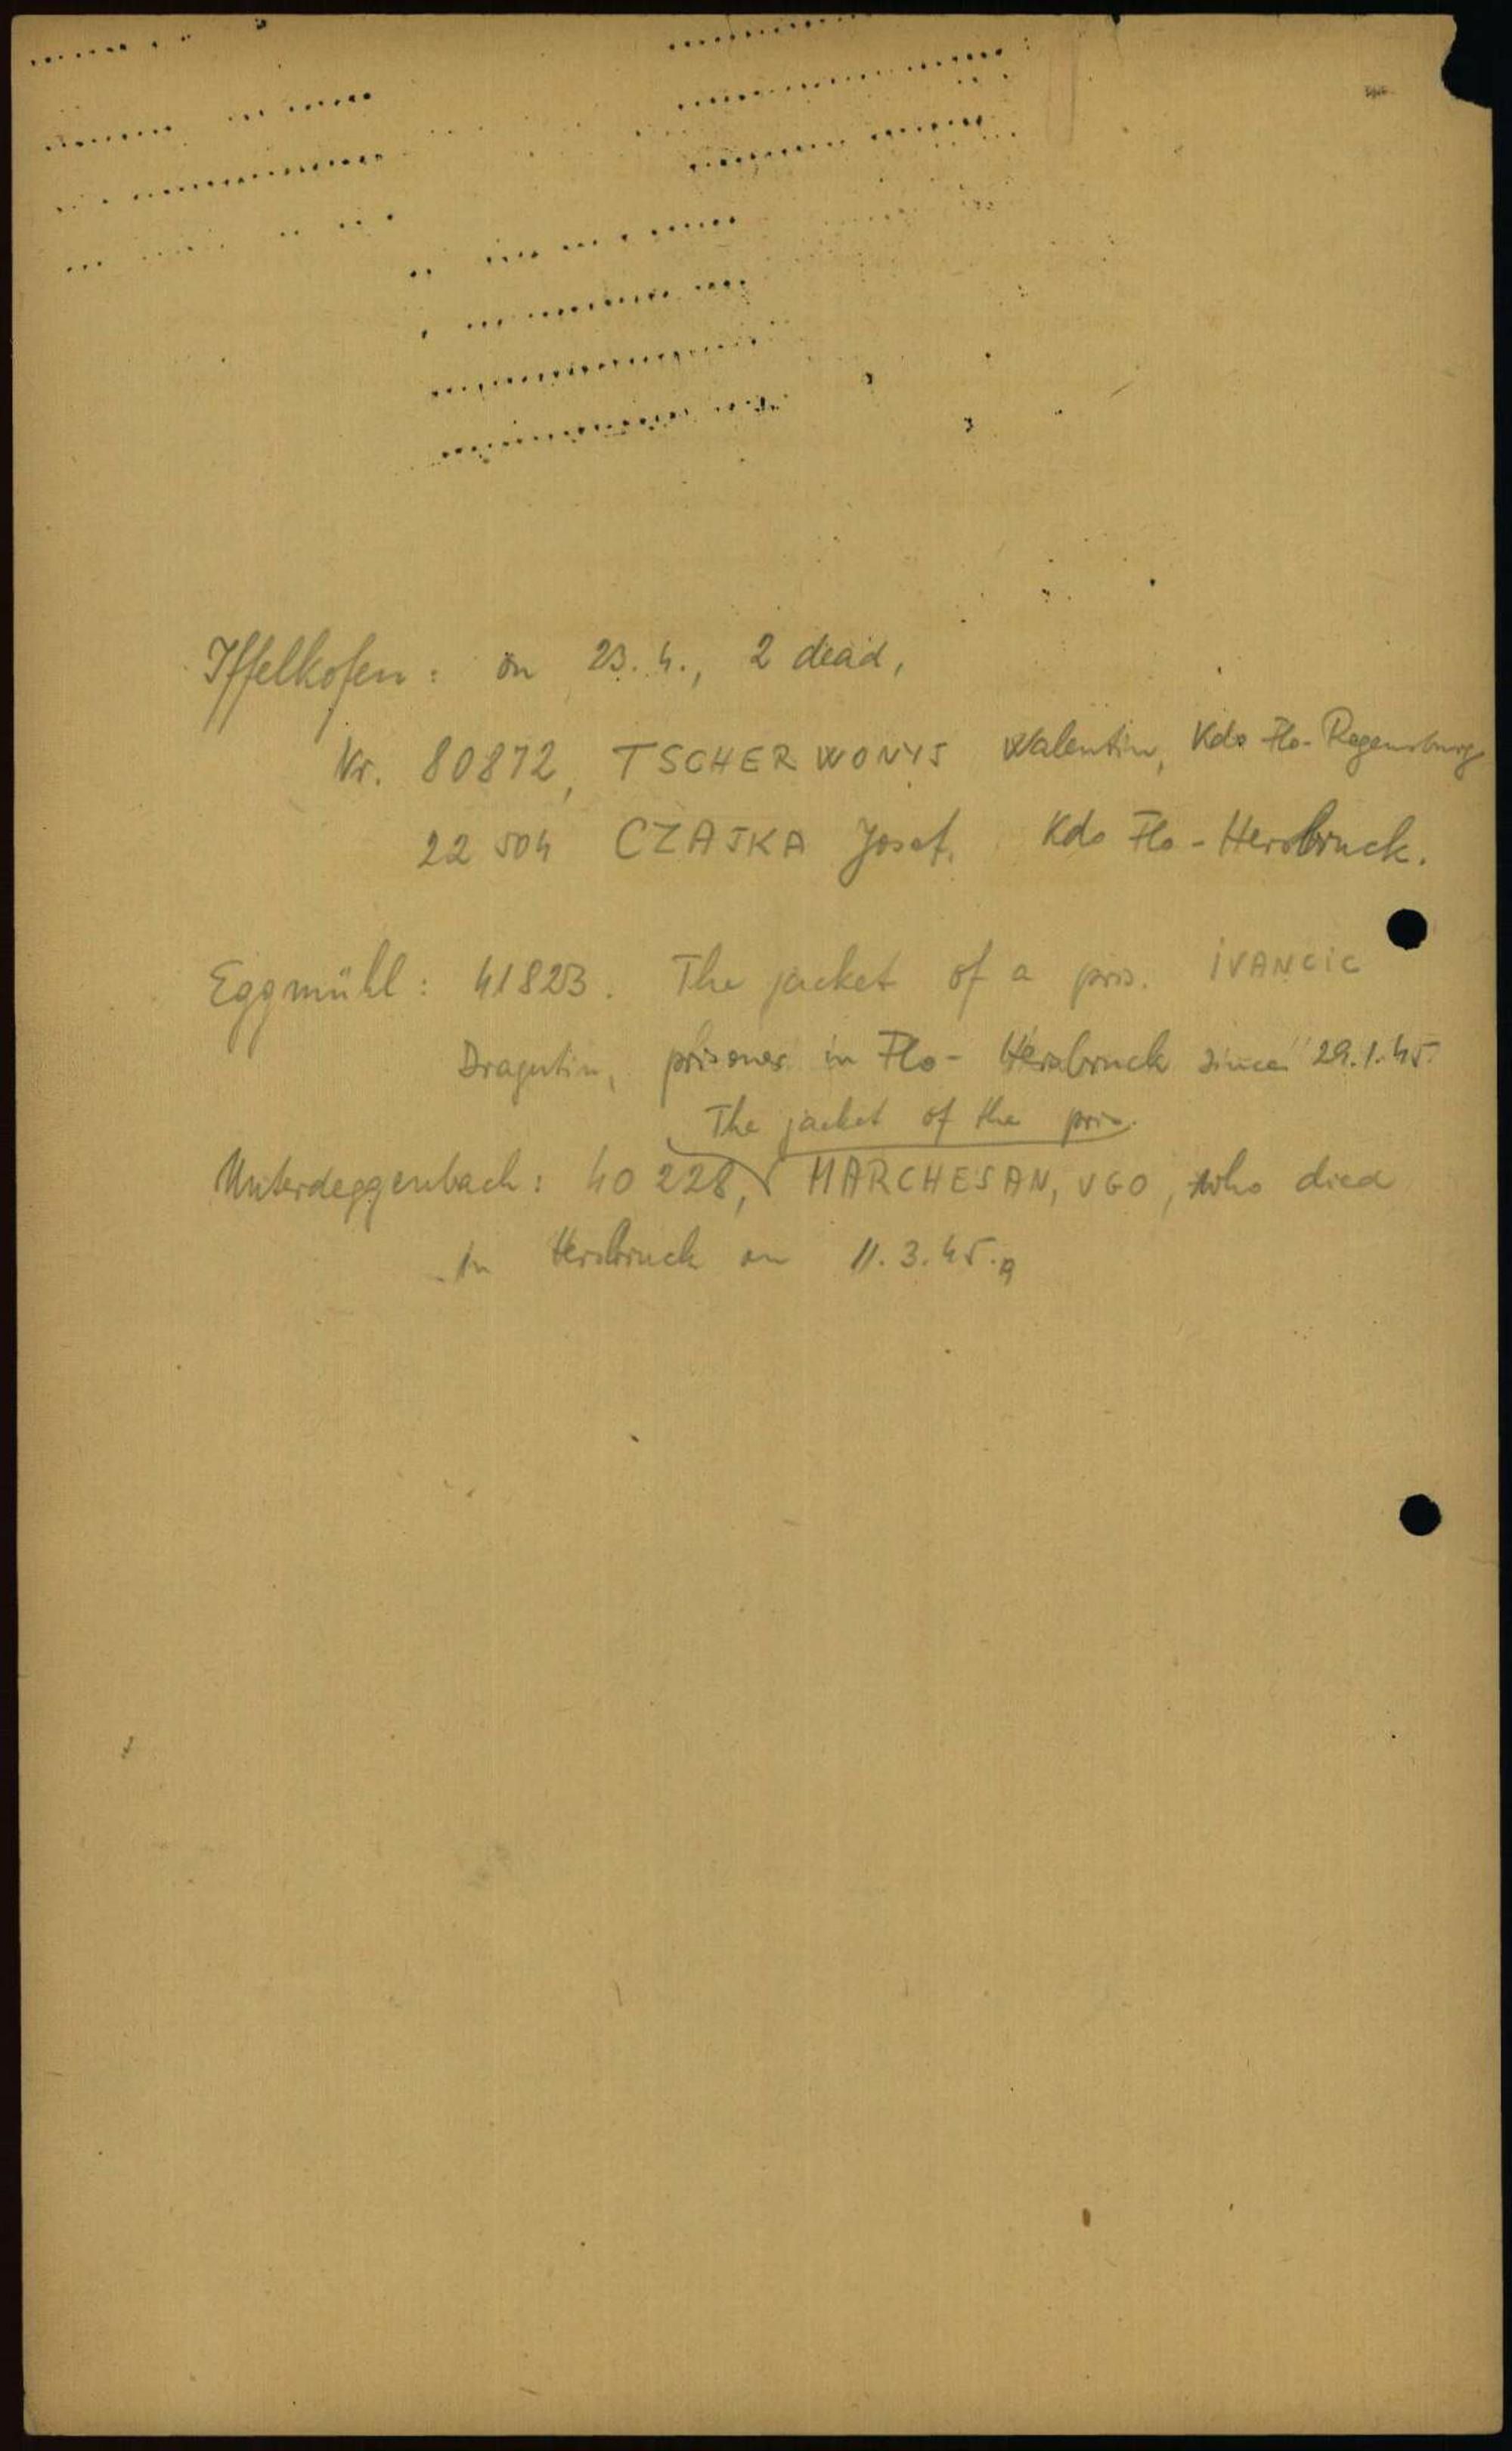 Iffelkofen: on 23.4., 2 dead,
Nr. 80872, TSCHERWONYS Walentin, Kdo Flo-Regensburg
22 504 CZAJKA Josef. Kdo Flo-Hersbruck.
Eggmühl: 41823. The jacket of a pris. IVANCIC
Dragutin, prisoner in Flo-Hersbruck since 29.1.45.
The jacket of the pris.
Unterdeggenbach: 40 228, MARCHESAN, UGO, who died
in Hersbruck on 11.3.45.